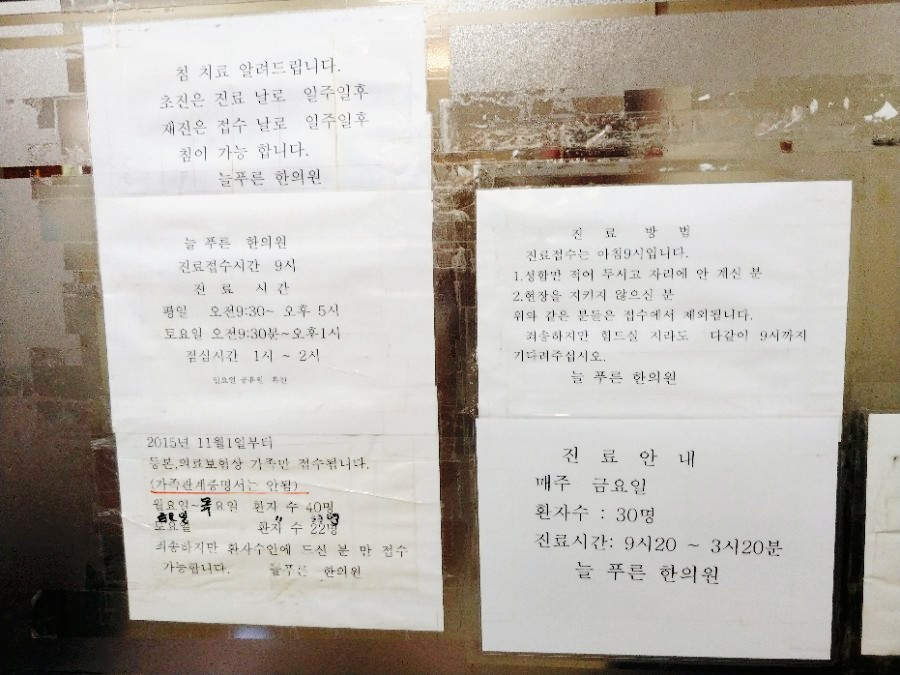 침 치료 알려드립니다.
초진은 진료 날로 일주일후
재진은 접수 날로 일주일후
침이 가능 합니다.
늘푸른 한의원
늘 푸른 한의원
진료접수시간 9시
진 료 시 간
평일 오전9:30~ 오후 5시
토요일 오전9:30분~오후1시
점심시간 1시 ~ 2시
일요일 공휴일 휴진
2015년 11월1일부터
등본,의료보험상 가족만 접수됩니다.
(가족관계증명서는 안됨)
월요일~목요일 환자 수 40명
토요일 환자 수 22명
죄송하지만 환자수인에 드신 분 만 접수
가능합니다. 늘푸른 한의원
진 료 방 법
진료접수는 아침9시입니다.
1.성함만 적어 두시고 자리에 안 계신 분
2.현장을 지키지 않으신 분
위와 같은 분들은 접수에서 제외됩니다.
죄송하지만 힘드실 지라도 다같이 9시까지
기다려주십시오.
늘 푸른 한의원
진 료 안 내
매주 금요일
환자수 : 30명
진료시간: 9시20 ~ 3시20분
늘 푸른 한의원